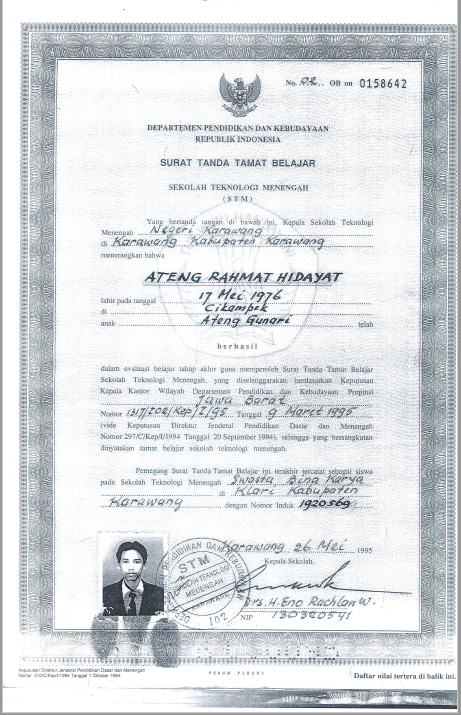 No. 02 OB on 0158642
DEPARTEMEN PENDIDIKAN DAN KEBUDAYAAN
REPUBLIK INDONESIA
SURAT TANDA TAMAT BELAJAR
SEKOLAH TEKNOLOGI MENENGAH
(STM)
Yang bertanda tangan di bawah ini, Kepala Sekolah Teknologi
Menengah Negeri Karawang
di Karawang Kabupaten Karawang
menerangkan bahwa
ATENG RAHMAT HIDAYAT
lahir pada tanggal 17 Mei 1976
di Cikampek
anak Ateng Gunari telah
berhasil
dalam evaluasi belajar tahap akhir guna memperoleh Surat Tanda Tamat Belajar
Sekolah Teknologi Menengah, yang diselenggarakan berdasarkan Keputusan
Kepala Kantor Wilayah Departemen Pendidikan dan Kebudayaan Propinsi
Jawa Barat
Nomor 1317/I02/Kep/I/95 Tanggal 9 Maret 1995
(vide Keputusan Direktur Jenderal Pendidikan Dasar dan Menengah
Nomor 297/C/Kep/I/1994 Tanggal 20 September 1994), sehingga yang bersangkutan
dinyatakan tamat belajar sekolah teknologi menengah.
Pemegang Surat Tanda Tamat Belajar ini terakhir tercatat sebagai siswa
pada Sekolah Teknologi Menengah Swasta Bina Karya
di Klari Kabupaten
Karawang dengan Nomor Induk 1920569
Karawang 26 Mei 1995
Kepala Sekolah,
STM
MENENGAH
KARAWANG
Drs. H. Eno Rachlan W.
NIP 130320541
Keputusan Direktur Jenderal Pendidikan Dasar dan Menengah
Nomor 310/C/Kep/I/1994 Tanggal 1 Oktober 1994.
PERUM PERURI
Daftar nilai tertera di balik ini.